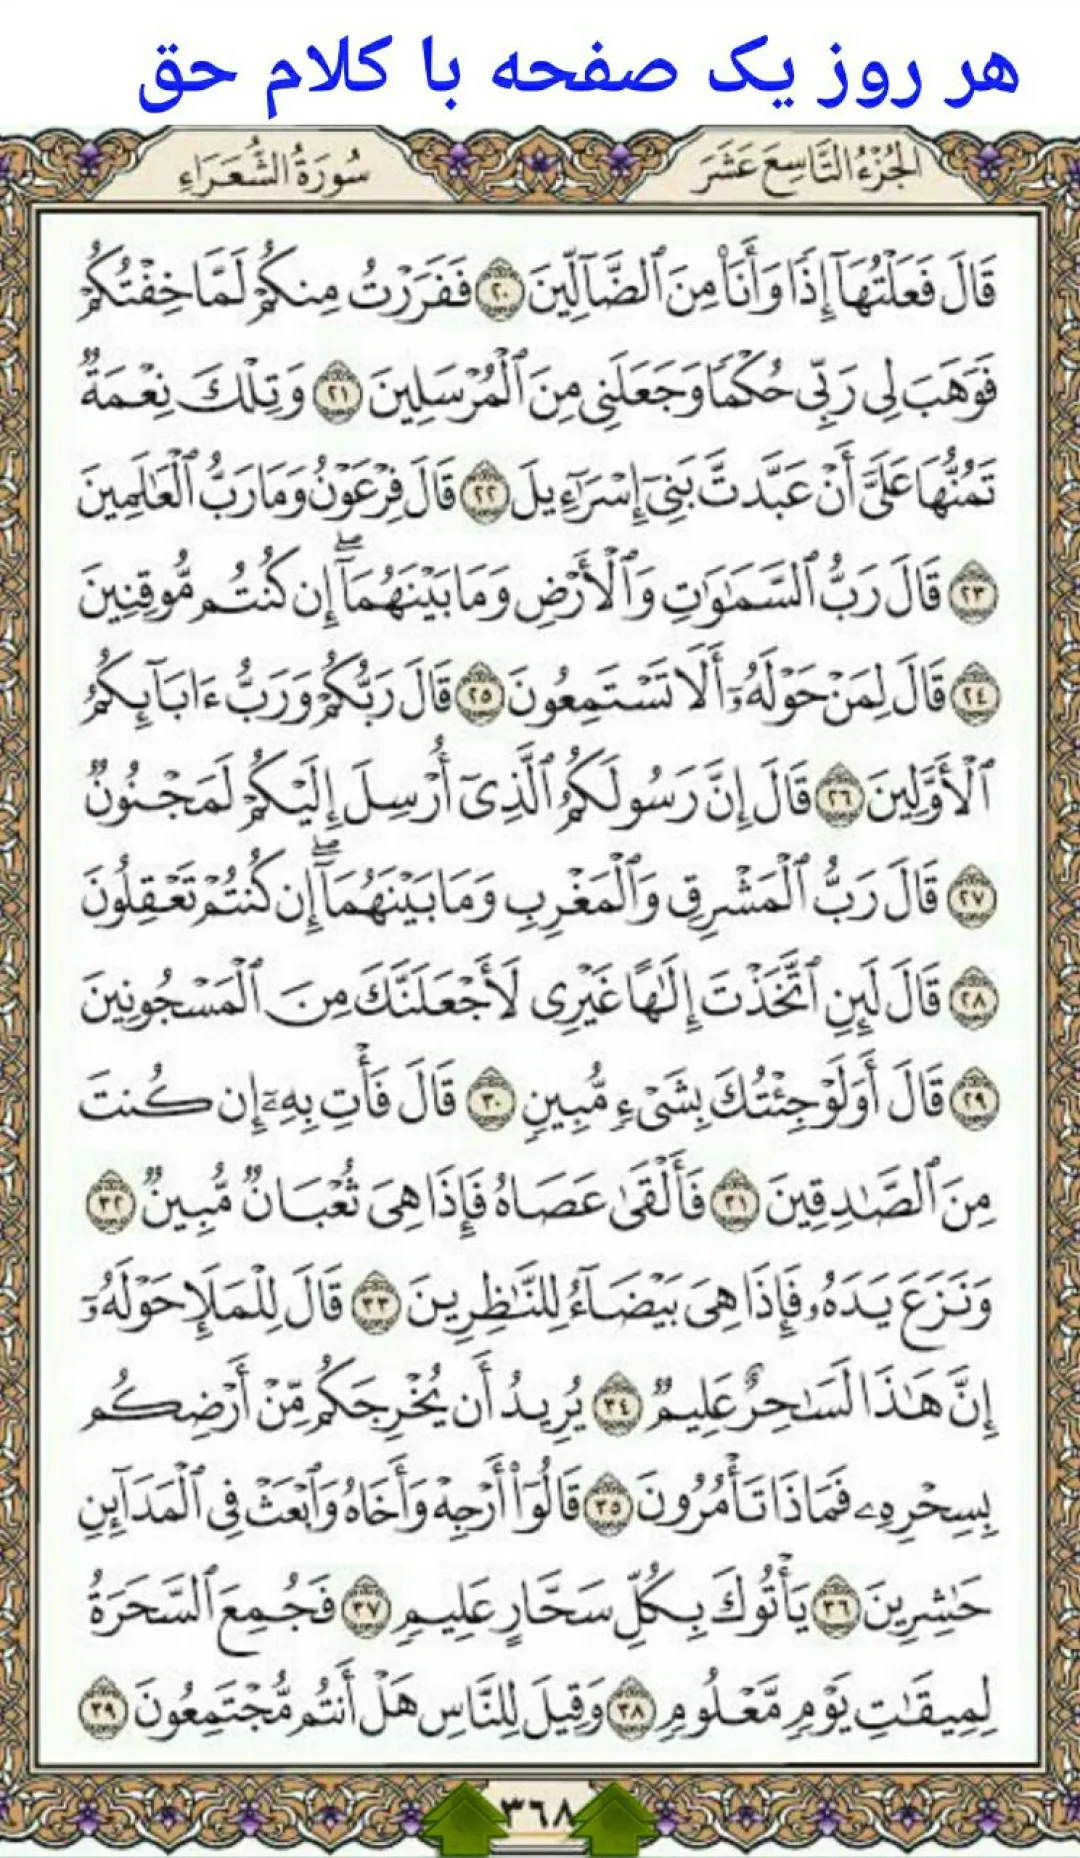 هر روز یک صفحه با کلام حق
الجُزْءُ التَّاسِعَ عَشَرَ
سُورَةُ الشُّعَرَاءِ
قَالَ فَعَلْتُهَآ إِذًا وَأَنَا۠ مِنَ ٱلضَّآلِّينَ ٢٠ فَفَرَرْتُ مِنكُمْ لَمَّا خِفْتُكُمْ
فَوَهَبَ لِى رَبِّى حُكْمًا وَجَعَلَنِى مِنَ ٱلْمُرْسَلِينَ ٢١ وَتِلْكَ نِعْمَةٌ
تَمُنُّهَا عَلَىَّ أَنْ عَبَّدتَّ بَنِىٓ إِسْرَٰٓءِيلَ ٢٢ قَالَ فِرْعَوْنُ وَمَا رَبُّ ٱلْعَٰلَمِينَ
٢٣ قَالَ رَبُّ ٱلسَّمَٰوَٰتِ وَٱلْأَرْضِ وَمَا بَيْنَهُمَآ ۖ إِن كُنتُم مُّوقِنِينَ
٢٤ قَالَ لِمَنْ حَوْلَهُۥٓ أَلَا تَسْتَمِعُونَ ٢٥ قَالَ رَبُّكُمْ وَرَبُّ ءَابَآئِكُمُ
ٱلْأَوَّلِينَ ٢٦ قَالَ إِنَّ رَسُولَكُمُ ٱلَّذِىٓ أُرْسِلَ إِلَيْكُمْ لَمَجْنُونٌ
٢٧ قَالَ رَبُّ ٱلْمَشْرِقِ وَٱلْمَغْرِبِ وَمَا بَيْنَهُمَآ ۖ إِن كُنتُمْ تَعْقِلُونَ
٢٨ قَالَ لَئِنِ ٱتَّخَذْتَ إِلَٰهًا غَيْرِى لَأَجْعَلَنَّكَ مِنَ ٱلْمَسْجُونِينَ
٢٩ قَالَ أَوَلَوْ جِئْتُكَ بِشَىْءٍ مُّبِينٍ ٣٠ قَالَ فَأْتِ بِهِۦٓ إِن كُنتَ
مِنَ ٱلصَّٰدِقِينَ ٣١ فَأَلْقَىٰ عَصَاهُ فَإِذَا هِىَ ثُعْبَانٌ مُّبِينٌ ٣٢
وَنَزَعَ يَدَهُۥ فَإِذَا هِىَ بَيْضَآءُ لِلنَّٰظِرِينَ ٣٣ قَالَ لِلْمَلَإِ حَوْلَهُۥٓ
إِنَّ هَٰذَا لَسَٰحِرٌ عَلِيمٌ ٣٤ يُرِيدُ أَن يُخْرِجَكُم مِّنْ أَرْضِكُم
بِسِحْرِهِۦ فَمَاذَا تَأْمُرُونَ ٣٥ قَالُوٓا۟ أَرْجِهْ وَأَخَاهُ وَٱبْعَثْ فِى ٱلْمَدَآئِنِ
حَٰشِرِينَ ٣٦ يَأْتُوكَ بِكُلِّ سَحَّارٍ عَلِيمٍ ٣٧ فَجُمِعَ ٱلسَّحَرَةُ
لِمِيقَٰتِ يَوْمٍ مَّعْلُومٍ ٣٨ وَقِيلَ لِلنَّاسِ هَلْ أَنتُم مُّجْتَمِعُونَ ٣٩
٣٦٨